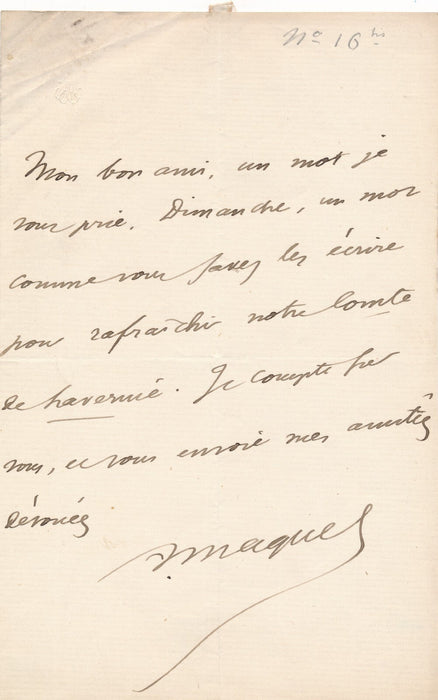 No 16 bis
Mon bon ami, un mot je
vous prie. Dimanche, un mot
comme vous savez les écrire
pour rafraîchir notre Comte
de Lavernie. Je compte sur
vous, et vous envoie mes amitiés
dévouées
AMaquet